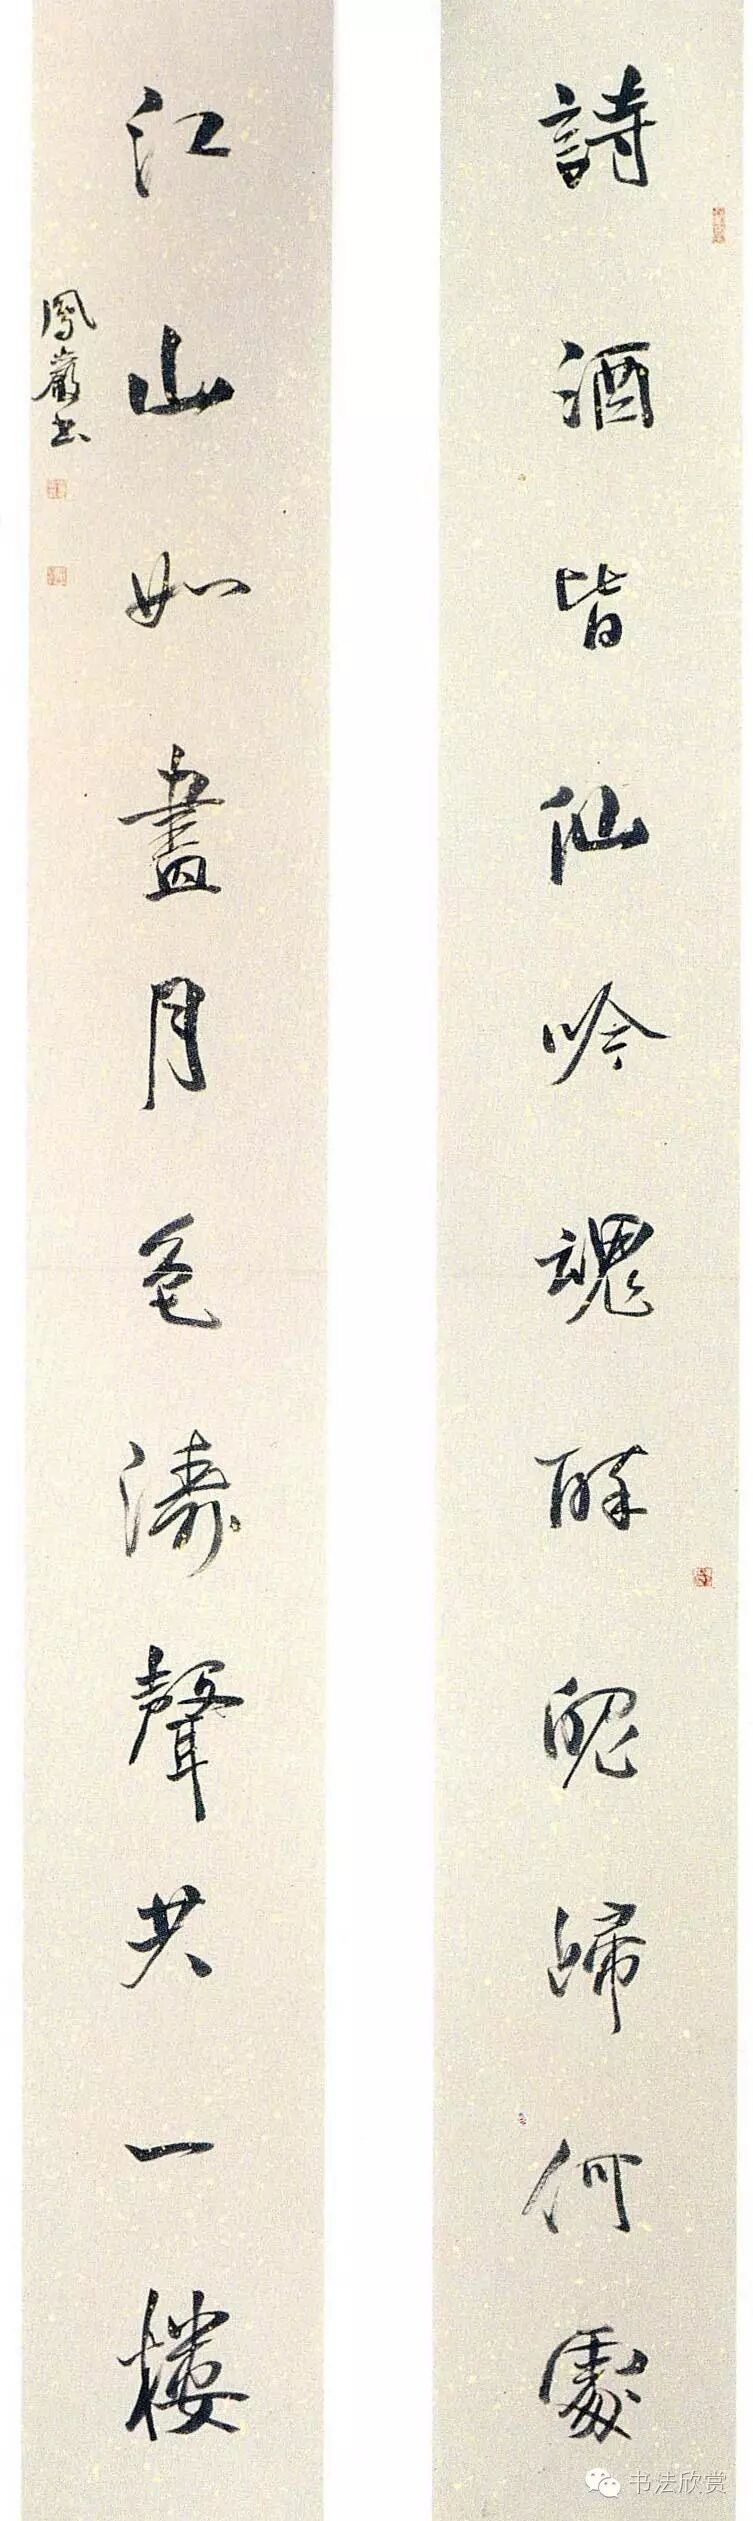 詩酒皆仙吟魂醉魄歸何處
江山如畫月色濤聲共一樓
鳳巖书
书法欣赏